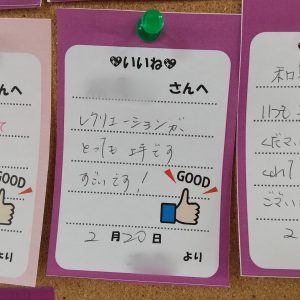 ♡いいね♡
さんへ
レクリエーションが
とっても上手です
すごいです!
GOOD
2月20日
より
さんへ
て
GOOD
より
和
いつも
くださ
くれて
ござい
2